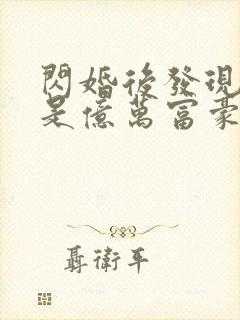 閃婚後發現
是億萬富豪
聶衛平